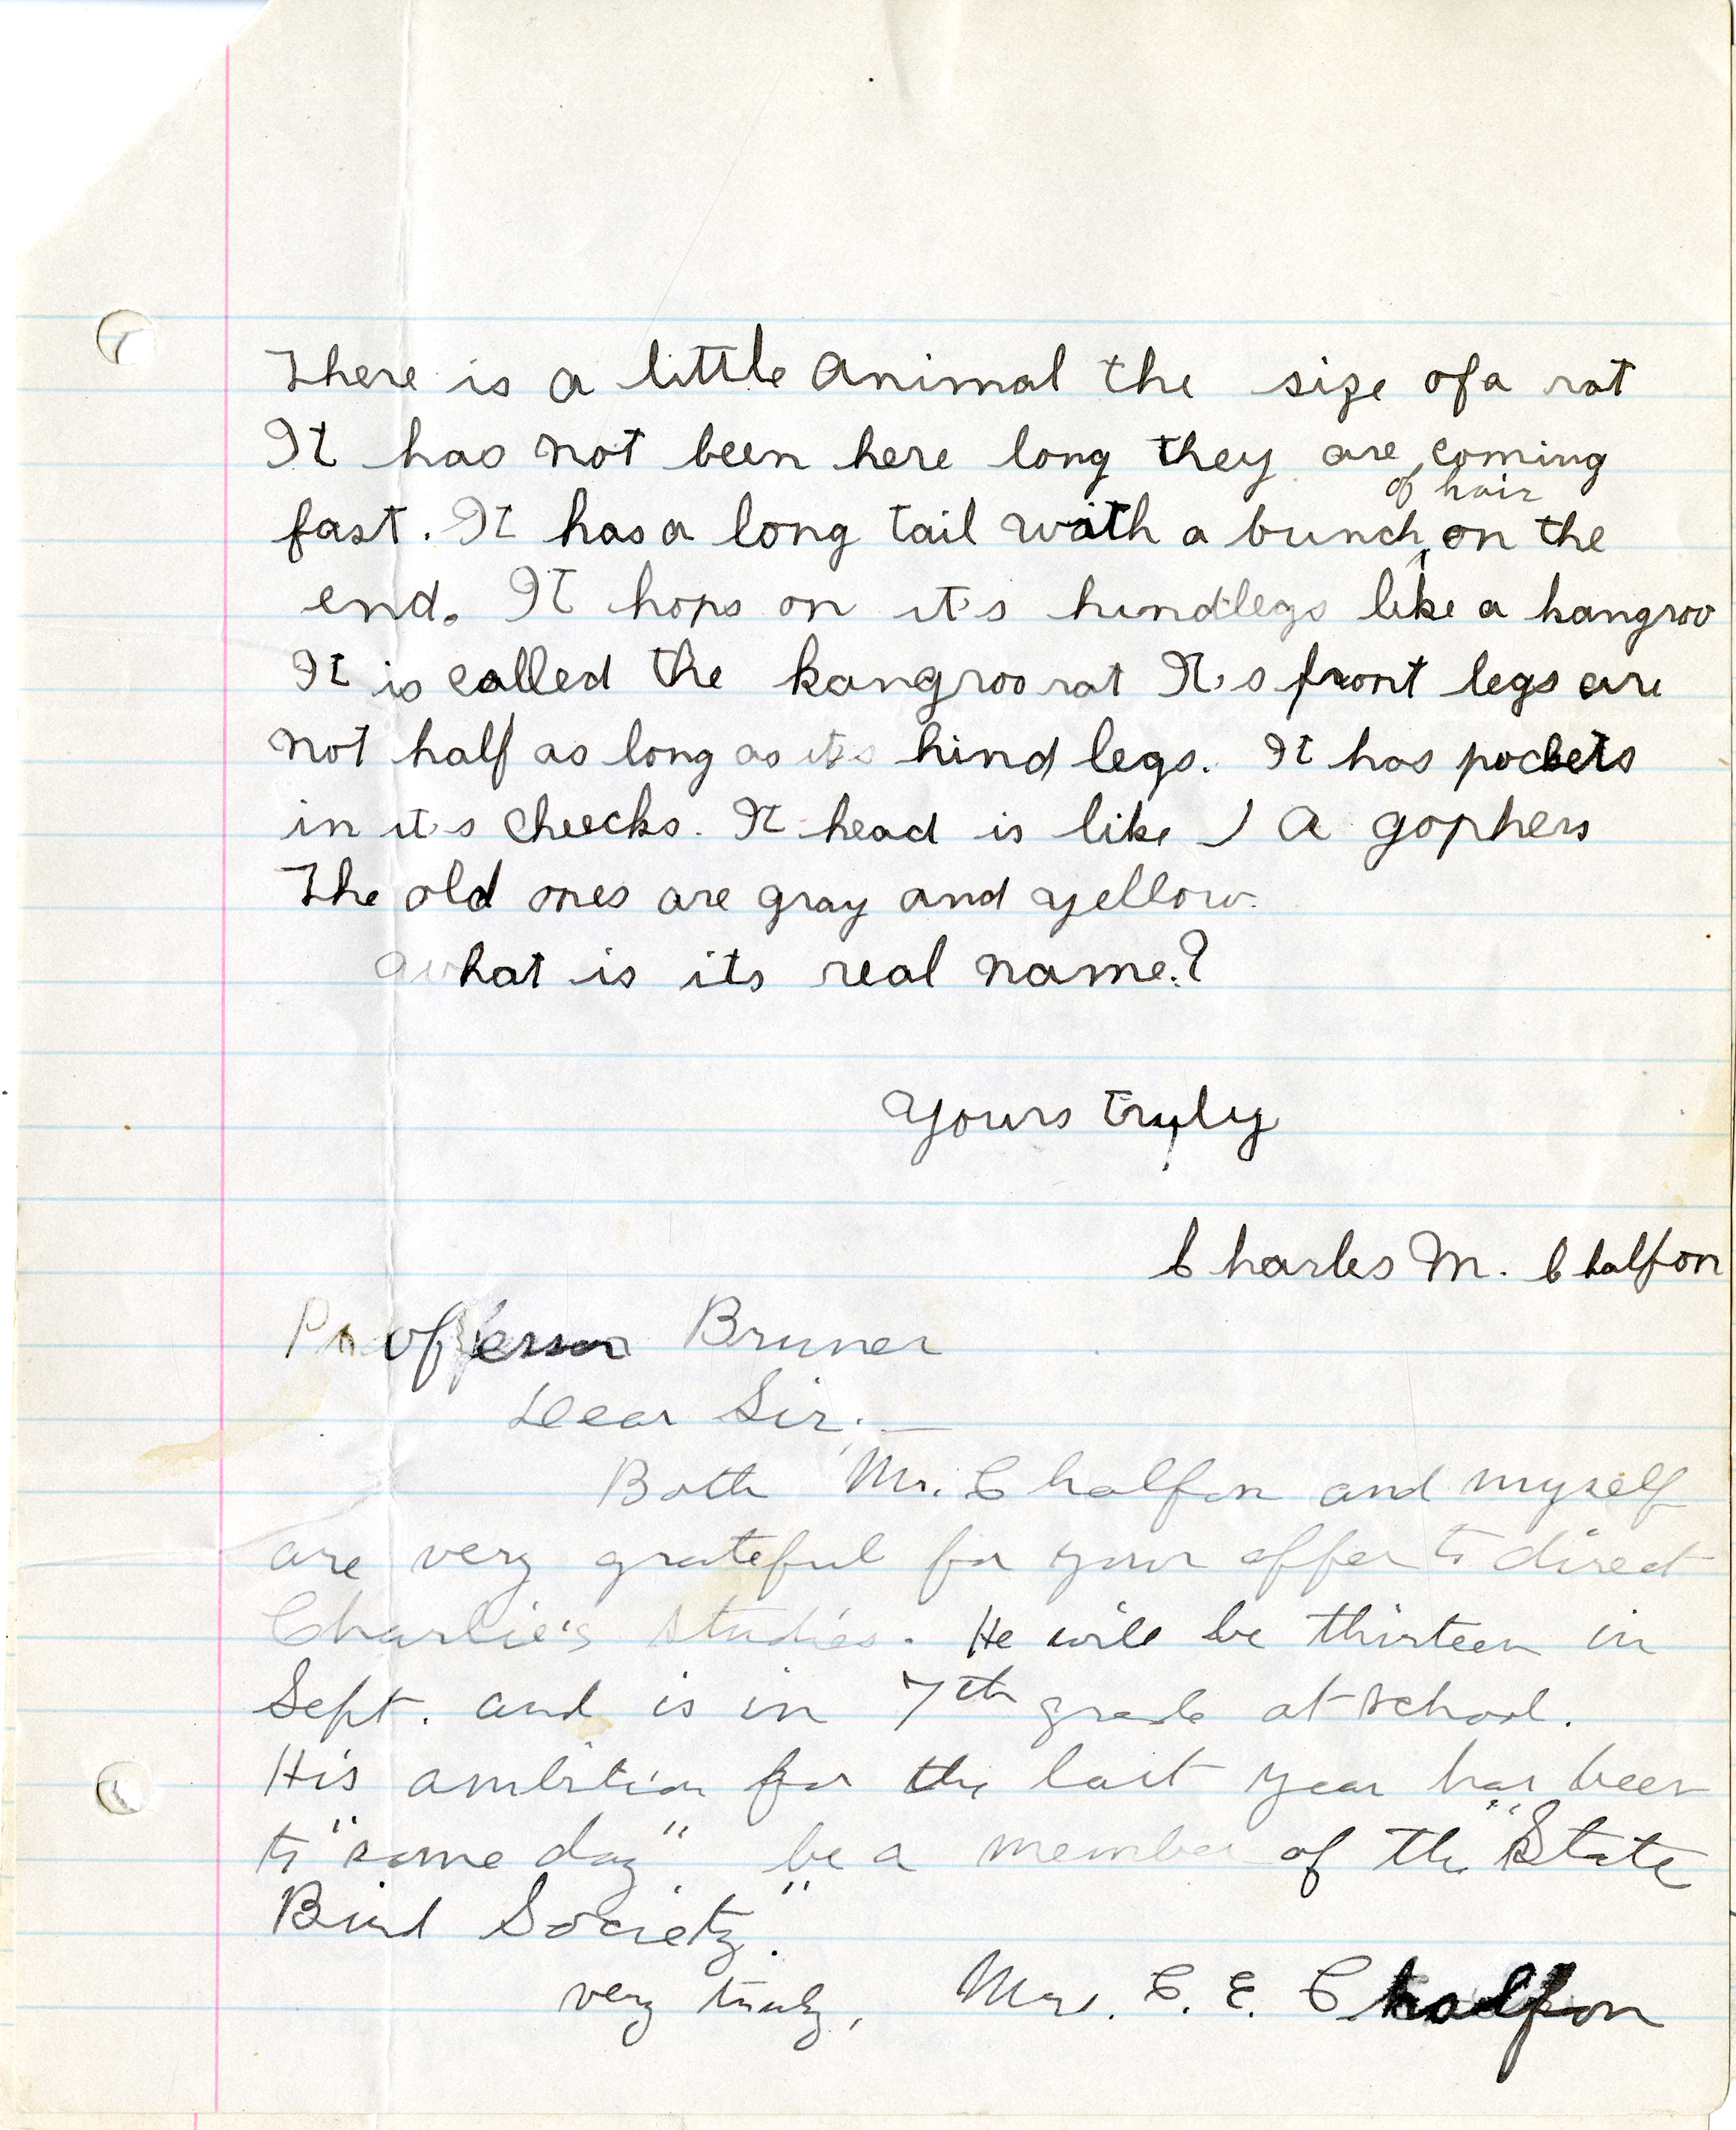 There is a little animal the size of a rat
It has not been here long they are coming
of hair
fast. It has a long tail with a bunch on the
end. It hops on it's hindlegs like a kangroo
It is called the kangroo rat It's front legs are
not half as long as it's hind legs. It has pockets
in it's cheecks. It head is like a gophers
The old ones are gray and yellow.
What is its real name?
Yours truly
Charles M. Chalfon
Proffessor Bruner
Dear Sir:—
Both Mr. Chalfon and myself
are very grateful for your offer to direct
Charlie's studies. He will be thirteen in
Sept. and is in 7th grade at school.
His ambition for the last year has been
to "some day" be a member of the "State
Bird Society."
very truly, Mrs. C. E. Chalfon